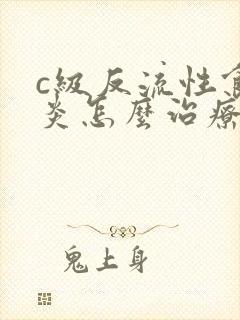 c級反流性食
炎怎麼治療
鬼上身